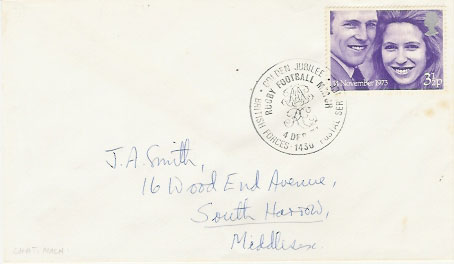 14 November 1973
3½p
GOLDEN JUBILEE
RUGBY FOOTBALL MATCH
4 DE
BRITISH FORCES 1430 POSTAL SER
J.A. Smith,
16 Wood End Avenue,
South Harrow,
Middlesex.